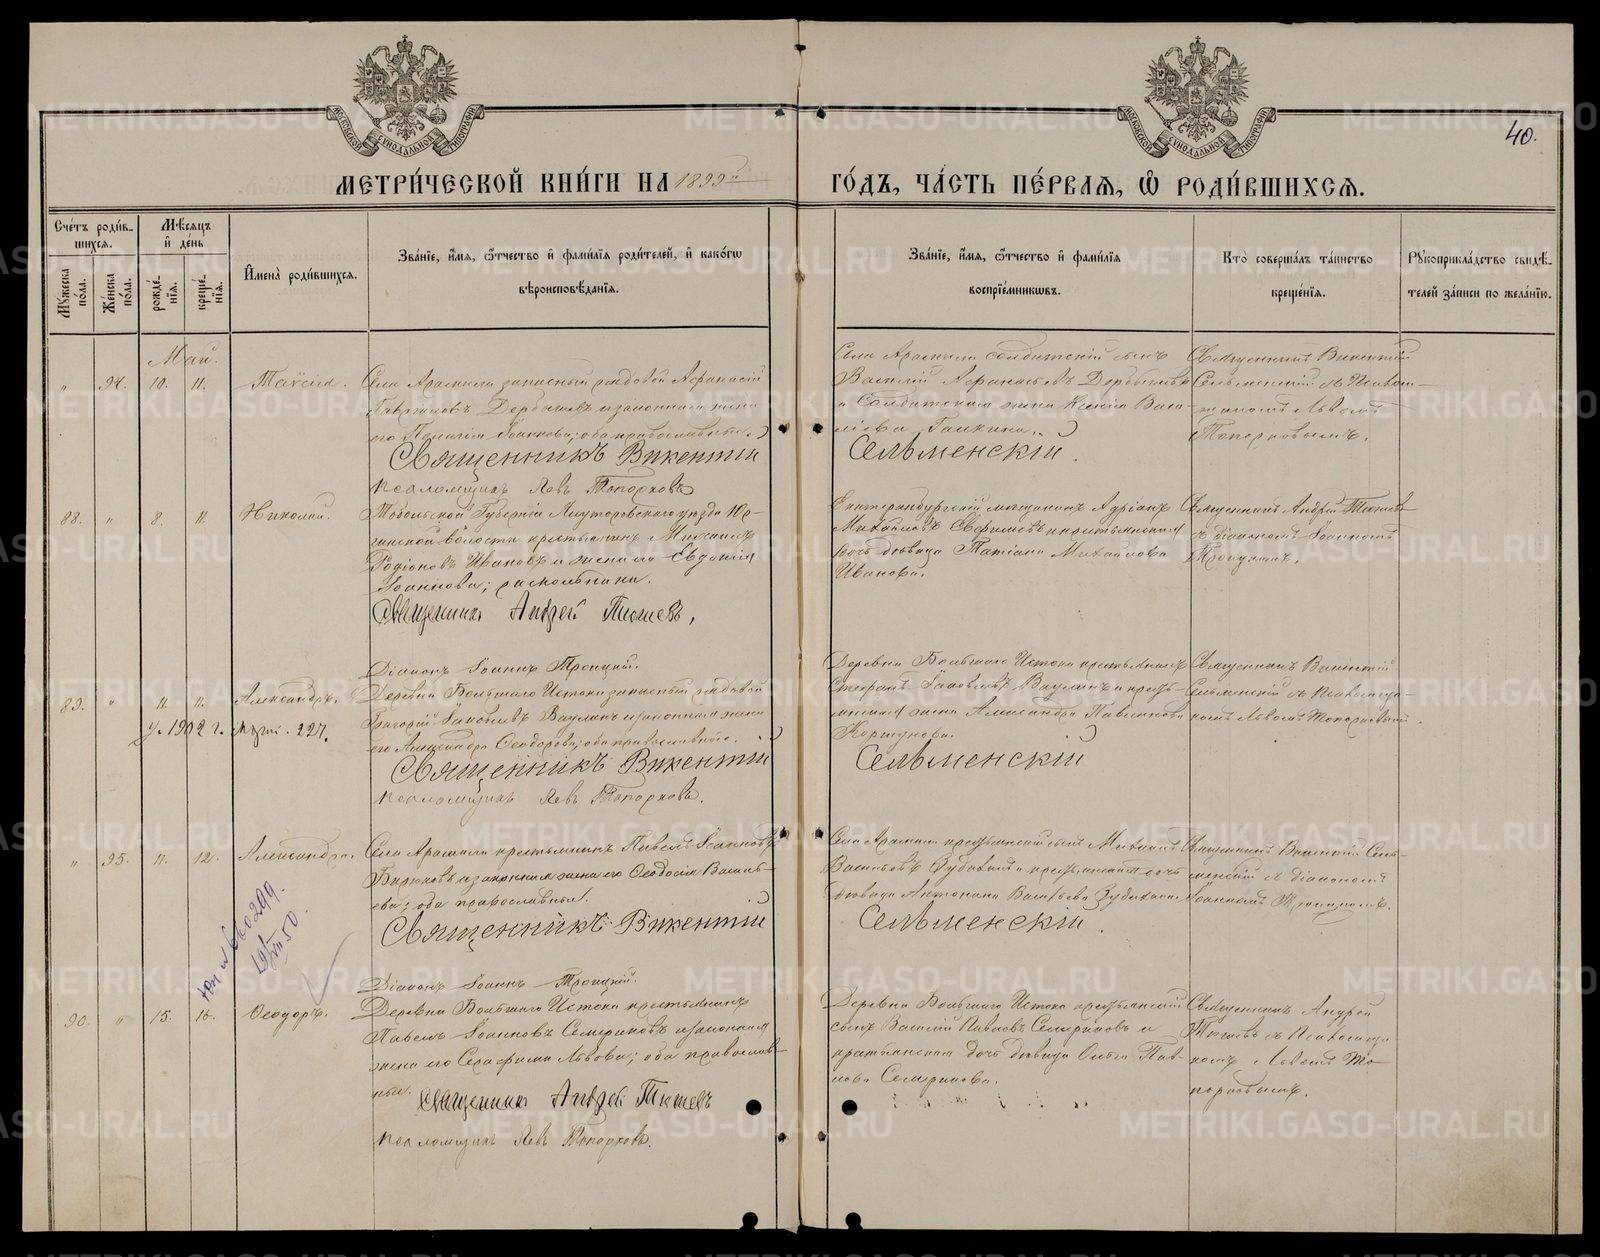 МОСКОВСКОЙ СѴНОДАЛЬНОЙ ТИПОГРАФІИ
МОСКОВСКОЙ СѴНОДАЛЬНОЙ ТИПОГРАФІИ
40.
МЕТРИ́ЧЕСКОЙ КНИ́ГИ НА 1899й
ГО́ДЪ, ЧА́СТЬ ПЕ́РВАѦ, Ѽ РОДИ́ВШИХСѦ.
Сче́тъ роди́в-
шихсѧ.
Мꙋжеска по́ла.
Же́нска по́ла.
Мѣ́сѧцъ и҆ де́нь
рожде́-нїѧ.
креще́-нїѧ.
И҆мена̀ роди́вшихсѧ.
Зва́нїе, и҆́мѧ, ѻ҆́тчество и҆ фами́лїѧ роди́телей, и҆ како́гѡ
вѣроисповѣ́данїѧ.
Зва́нїе, и҆́мѧ, ѻ҆́тчество и҆ фами́лїѧ
воспрїе́мникѡвъ.
Кто̀ соверша́лъ та́инство
креще́нїѧ.
Рꙋкоприкла́дство свидѣ́-
телей за́писи по жела́нїю.
Май.
" 94. 10. 11. Таисія.
Села Арамили запасный рядовой Аѳанасій
Гавриловъ Дербышевъ и законная жена
его Пелагія Іоаннова; оба православные.
Священникъ Викентій
Псаломщикъ Левъ Топорковъ
Села Арамили солдатскій сынъ
Василій Аѳанасьевъ Дербышевъ
и Солдатская жена Ксенія Васи-
ліева Галкина.
Сельменскій.
Священникъ Викентій
Сельменскій съ Псалом-
щикомъ Львомъ
Топорковымъ.
88. " 8. 11. Николай.
Тобольской Губерніи Ялуторовскаго уѣзда Юр-
гинской волости крестьянинъ Михаилъ
Родіоновъ Ивановъ и жена его Евдокія
Іоаннова; раскольники.
Священникъ Андрей Тюшевъ,
Діаконъ Іоаннъ Троицкій.
Екатеринбургскій мѣщанинъ Адріанъ
Михайловъ и крестьянская
дочь дѣвица Татіана Михайлова
Иванова.
Священникъ Андрей Тюшевъ
съ діакономъ Іоанномъ
Троицкимъ.
89. " 11. 11. Александръ.
у. 1902 г. мрт. 227.
Деревни Большаго Истока запасный рядовой
Григорій Іаковлевъ Ваулинъ и законная жена
его Александра Ѳеодорова; оба православные.
Священникъ Викентій
Псаломщикъ Левъ Топорковъ.
Деревни Большаго Истока крестьянинъ
Стефанъ Іаковлевъ Ваулинъ и кресть-
янская жена Александра Павлинова
Коршунова.
Сельменскій
Священникъ Викентій
Сельменскій съ Псаломщи-
комъ Львомъ Топорковымъ.
" 95. 11. 12. Александра.
Села Арамили крестьянинъ Павелъ Іоанновъ
Бирюковъ и законная жена его Ѳеодосія Василь-
ева; оба православные.
Священникъ Викентій
Діаконъ Іоаннъ Троицкій.
Села Арамили крестьянскій сынъ Михаилъ
Васильевъ Зубакинъ и крестьянская дочь
дѣвица Антонина Васильева Зубакина
Сельменскій.
Священникъ Викентій Сель-
менскій съ діакономъ
Іоанномъ Троицкимъ.
90. " 15. 16. Ѳеодоръ.
Деревни Большаго Истока крестьянинъ
Павелъ Іоанновъ Семериковъ и законная
жена его Серафима Львова; оба православ-
ные.
Священникъ Андрей Тюшевъ
Псаломщикъ Левъ Топорковъ.
Деревни Большаго Истока крестьянскій
сынъ Василій Павловъ Семериковъ и
крестьянская дочь дѣвица Ольга Пав-
лова Семерикова.
Священникъ Андрей
Тюшевъ съ Псаломщи-
комъ Львомъ То-
порковымъ.
METRIKI.GASO-URAL.RU